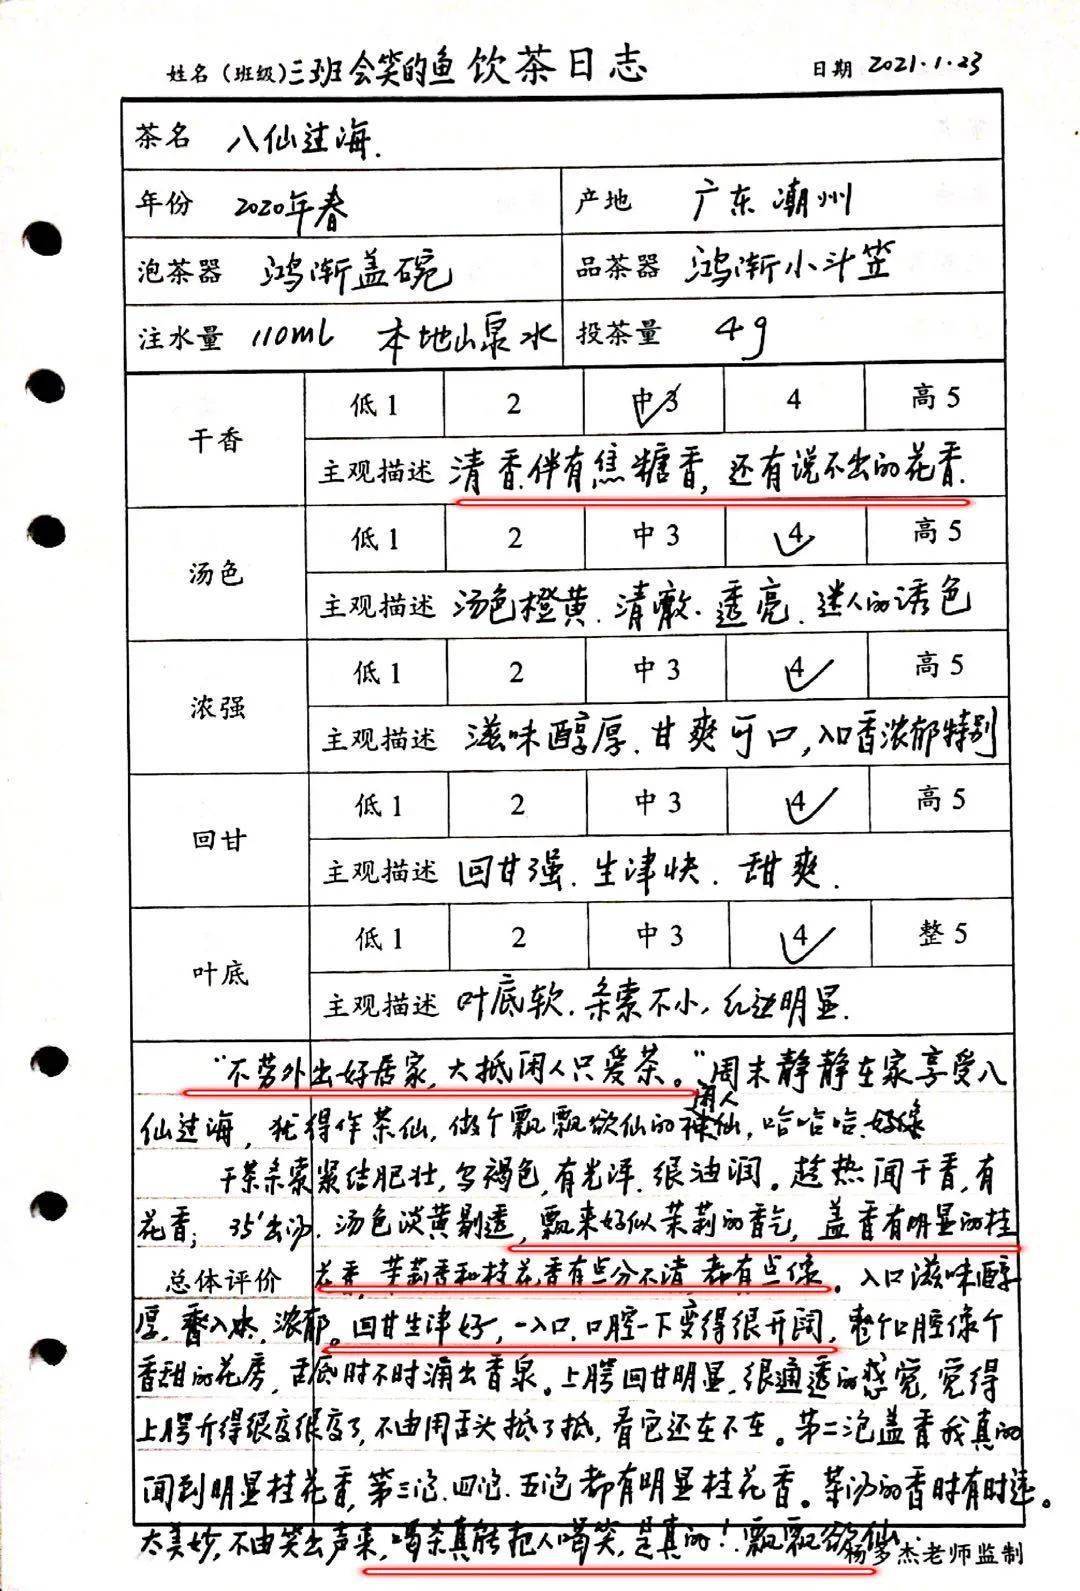 姓名（班级）三班会笑的鱼 饮茶日志 日期 2021.1.23
茶名 八仙过海.
年份 2020年春 产地 广东潮州
泡茶器 鸿渐盖碗 品茶器 鸿渐小斗笠
注水量 110mL 本地山泉水 投茶量 4g
干香 低1 2 中3 4 高5
主观描述 清香.伴有焦糖香，还有说不出的花香.
汤色 低1 2 中3 4 高5
主观描述 汤色橙黄.清澈.透亮.迷人的诱色
浓强 低1 2 中3 4 高5
主观描述 滋味醇厚.甘爽可口，入口香浓郁特别
回甘 低1 2 中3 4 高5
主观描述 回甘强.生津快.甜爽.
叶底 低1 2 中3 4 整5
主观描述 叶底软.条索不小，红边明显.
“不劳外出好居家，大抵闲人只爱茶。”周末静静在家享受八
闲人
仙过海，犹得作茶仙，做个飘飘欲仙的神仙，哈哈哈.
干茶条索紧结肥壮，乌褐色，有光泽.很油润。趁热闻干香，有
花香；35"出汤.汤色淡黄剔透，飘来好似茉莉的香气，盖香有明显的桂
总体评价 花香，茉莉香和桂花香有点分不清，都有点像。入口滋味醇
厚，香入水，浓郁。回甘生津好，一入口，口腔一下变得很开阔，整个口腔像个
香甜的花房，舌底时不时涌出香泉。上腭回甘明显，很通透的感觉，觉得
上腭开得很度很度了，不由用舌头抵了抵，看它还在不在。第二泡盖香我真的
闻到明显桂花香，第三泡.四泡.五泡都有明显桂花香。茶汤的香时有时远。
太美妙，不由笑出声来，喝茶真能把人喝笑，是真的！飘飘欲仙.
杨多杰老师监制